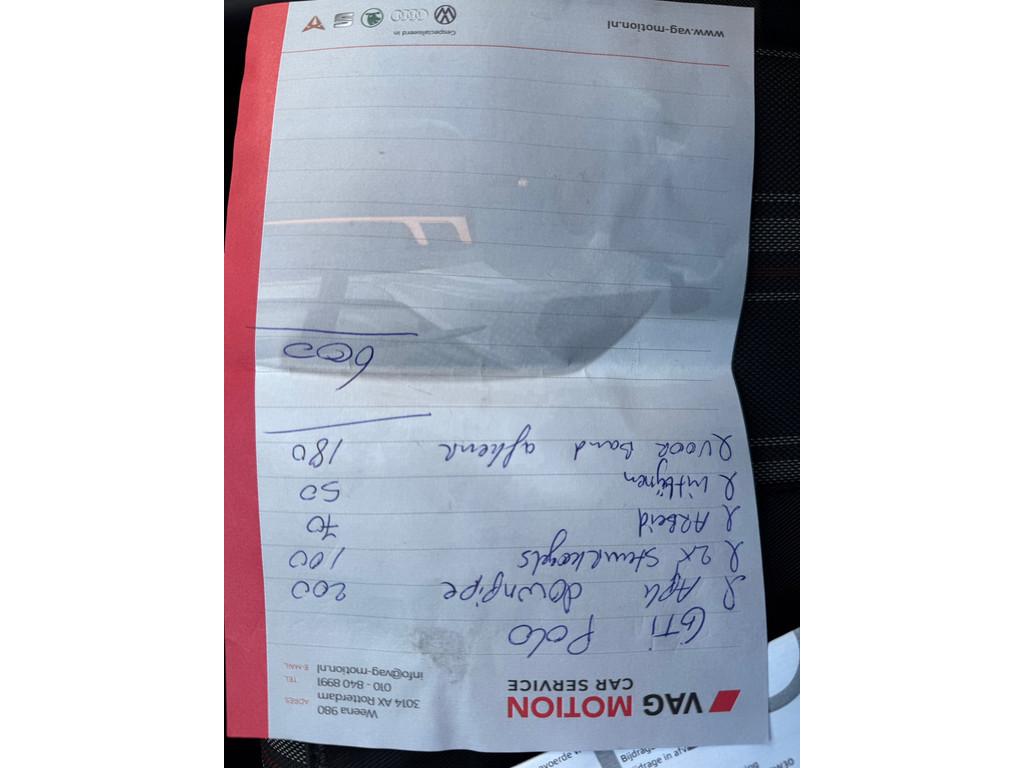 VAG MOTION
CAR SERVICE
ADRES Weena 980
3014 AX Rotterdam
TEL 010 - 840 8991
E-MAIL info@vag-motion.nl
GTI Polo
downpipe 200
2x Stuurkogels 100
Arbeid 70
uitlijnen 50
voor Band 180
600
www.vag-motion.nl
Gespecialiseerd in
Bijdrage
Bijdrage in